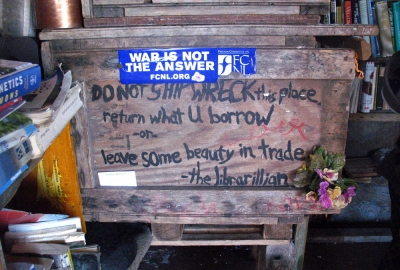 WAR IS NOT
THE ANSWER
FCNL.ORG
FC
NL
DO NOT SHIP WRECK this place,
return what U borrow
-or-
leave some beauty in trade
-the librarillian